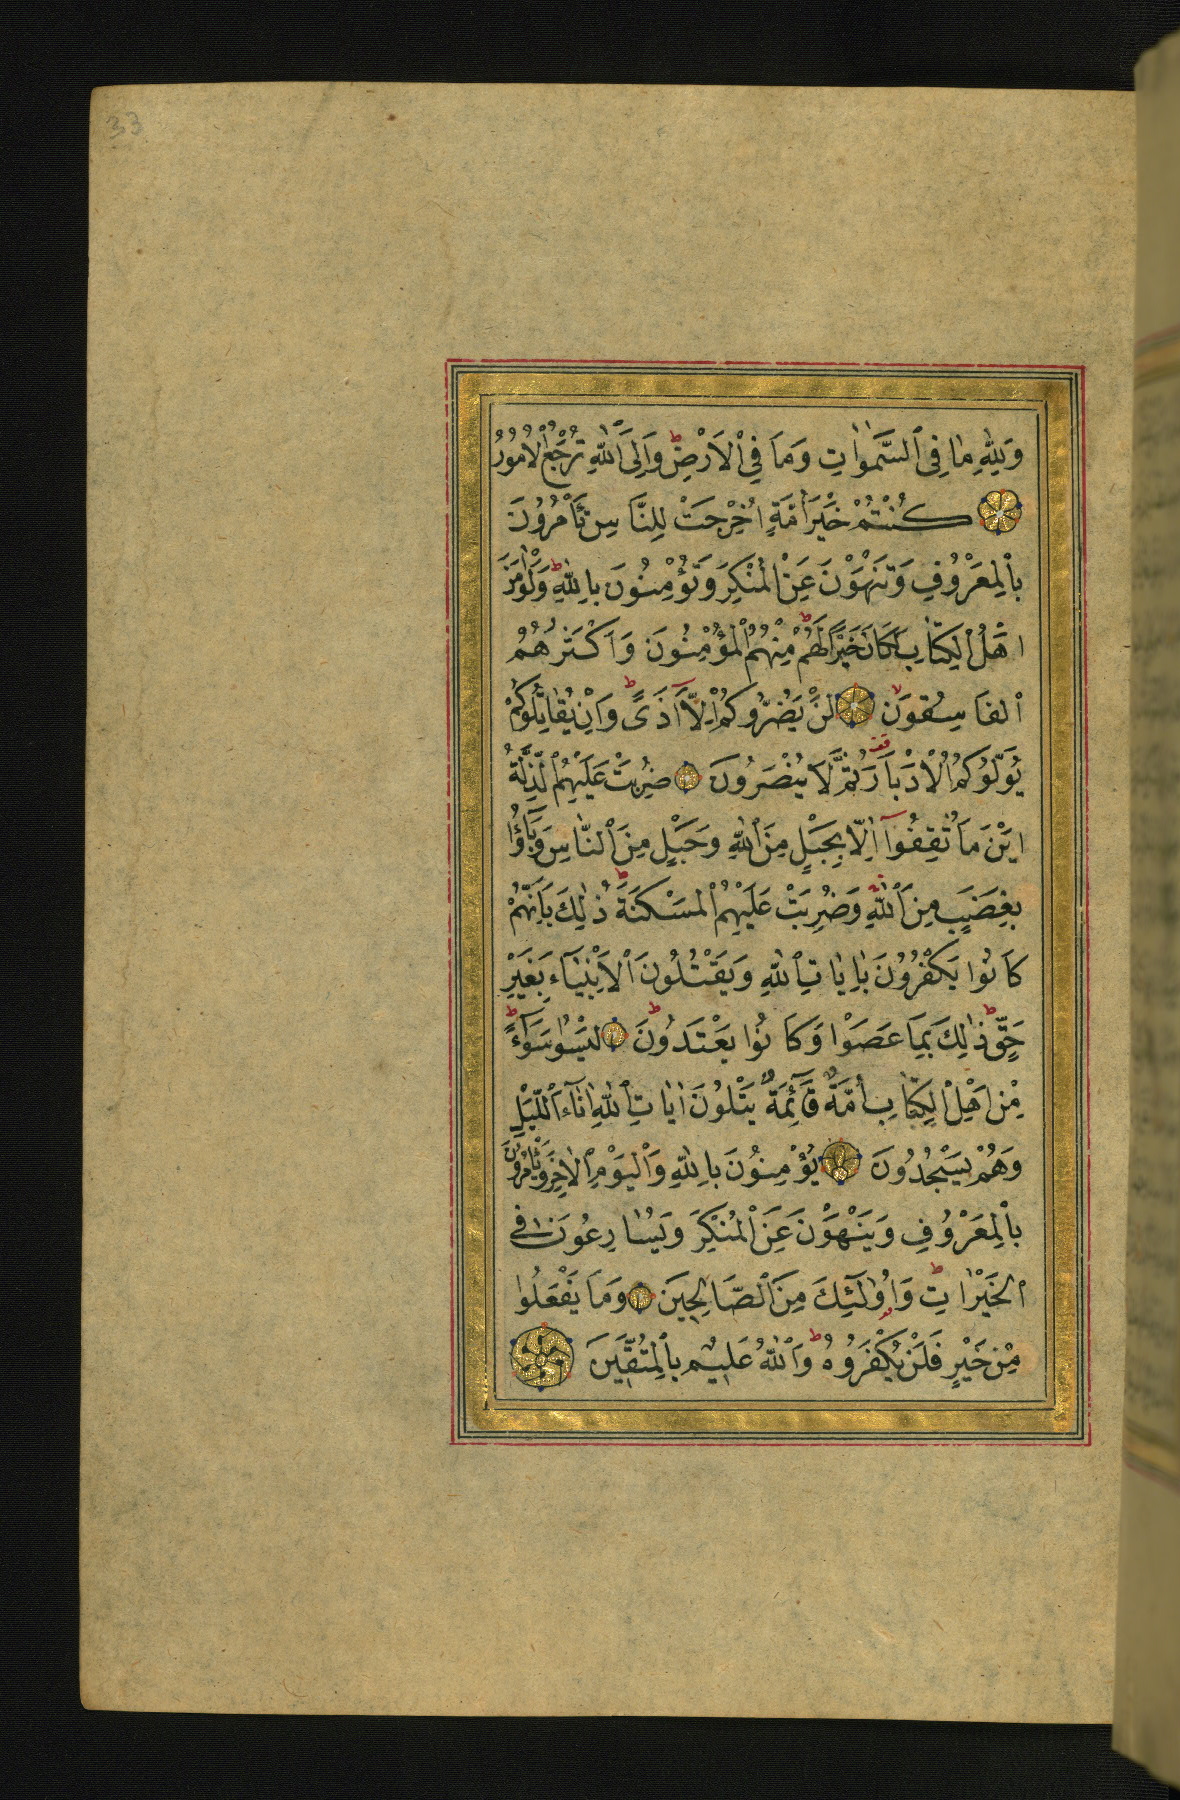 33
وَلِلّٰهِ مَا فِي ٱلسَّمٰوَاتِ وَمَا فِي ٱلْاَرْضِ ط وَاِلَى ٱللّٰهِ تُرْجَعُ ٱلْاُمُورُ
كُنْتُمْ خَيْرَ اُمَّةٍ اُخْرِجَتْ لِلنَّاسِ تَأْمُرُونَ
بِٱلْمَعْرُوفِ وَتَنْهَوْنَ عَنِ ٱلْمُنْكَرِ وَتُؤْمِنُونَ بِاللّٰهِ ط وَلَوْ اٰمَنَ
اَهْلُ ٱلْكِتَابِ لَكَانَ خَيْرًا لَهُمْ ط مِنْهُمُ ٱلْمُؤْمِنُونَ وَاَكْثَرُهُمُ
ٱلْفَاسِقُونَ لَنْ يَضُرُّوكُمْ اِلَّآ اَذًى ط وَاِنْ يُقَاتِلُوكُمْ
يُوَلُّوكُمُ ٱلْاَدْبَارَ ثُمَّ لَا يُنْصَرُونَ ضُرِبَتْ عَلَيْهِمُ ٱلذِّلَّةُ
اَيْنَ مَا ثُقِفُوٓا اِلَّا بِحَبْلٍ مِنَ ٱللّٰهِ وَحَبْلٍ مِنَ ٱلنَّاسِ وَبَآؤُا
بِغَضَبٍ مِنَ ٱللّٰهِ وَضُرِبَتْ عَلَيْهِمُ ٱلْمَسْكَنَةُ ط ذٰلِكَ بِاَنَّهُمْ
كَانُوا يَكْفُرُونَ بِاٰيَاتِ ٱللّٰهِ وَيَقْتُلُونَ ٱلْاَنْبِيَآءَ بِغَيْرِ
حَقٍّ ط ذٰلِكَ بِمَا عَصَوْا وَكَانُوا يَعْتَدُونَ ط لَيْسُوا سَوَآءً ط
مِنْ اَهْلِ ٱلْكِتَابِ اُمَّةٌ قَآئِمَةٌ يَتْلُونَ اٰيَاتِ ٱللّٰهِ اٰنَآءَ ٱللَّيْلِ
وَهُمْ يَسْجُدُونَ يُؤْمِنُونَ بِاللّٰهِ وَٱلْيَوْمِ ٱلْاٰخِرِ وَيَأْمُرُونَ
بِٱلْمَعْرُوفِ وَيَنْهَوْنَ عَنِ ٱلْمُنْكَرِ وَيُسَارِعُونَ فِي
ٱلْخَيْرَاتِ ط وَاُولٰٓئِكَ مِنَ ٱلصَّالِحِينَ وَمَا يَفْعَلُوا
مِنْ خَيْرٍ فَلَنْ يُكْفَرُوهُ ط وَٱللّٰهُ عَلِيمٌ بِٱلْمُتَّقِينَ